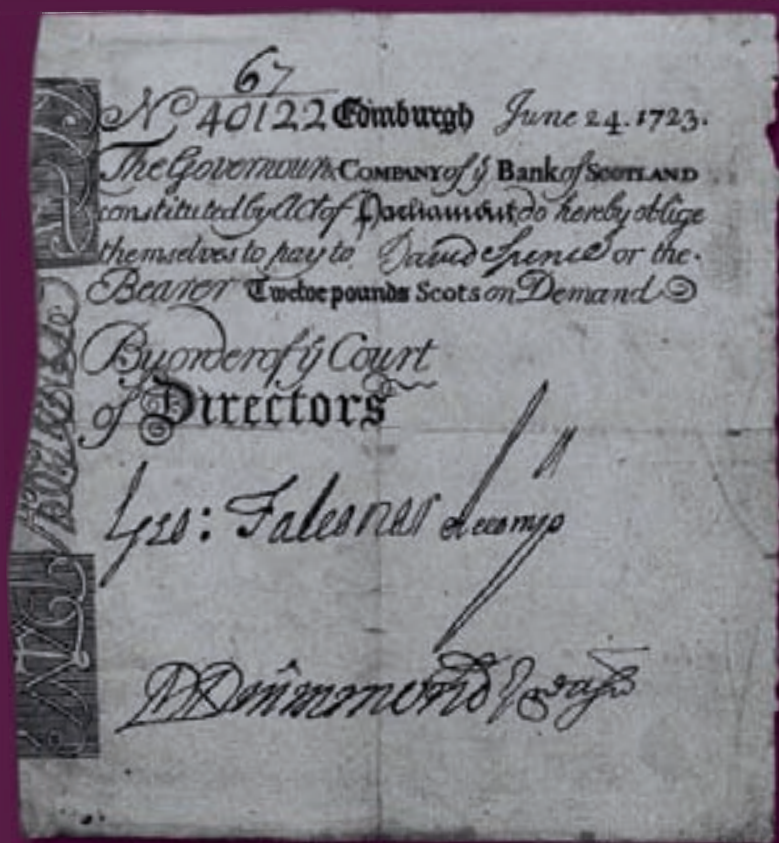 67
No 40122 Edinburgh June 24. 1723.
The Governour & COMPANY of ye Bank of SCOTLAND
constituted by Act of Parliament do hereby oblige
themselves to pay to David Spence or the
Bearer Twelve pounds Scots on Demand
By order of ye Court
of Directors
Geo: Falconar Accomp
Drummond